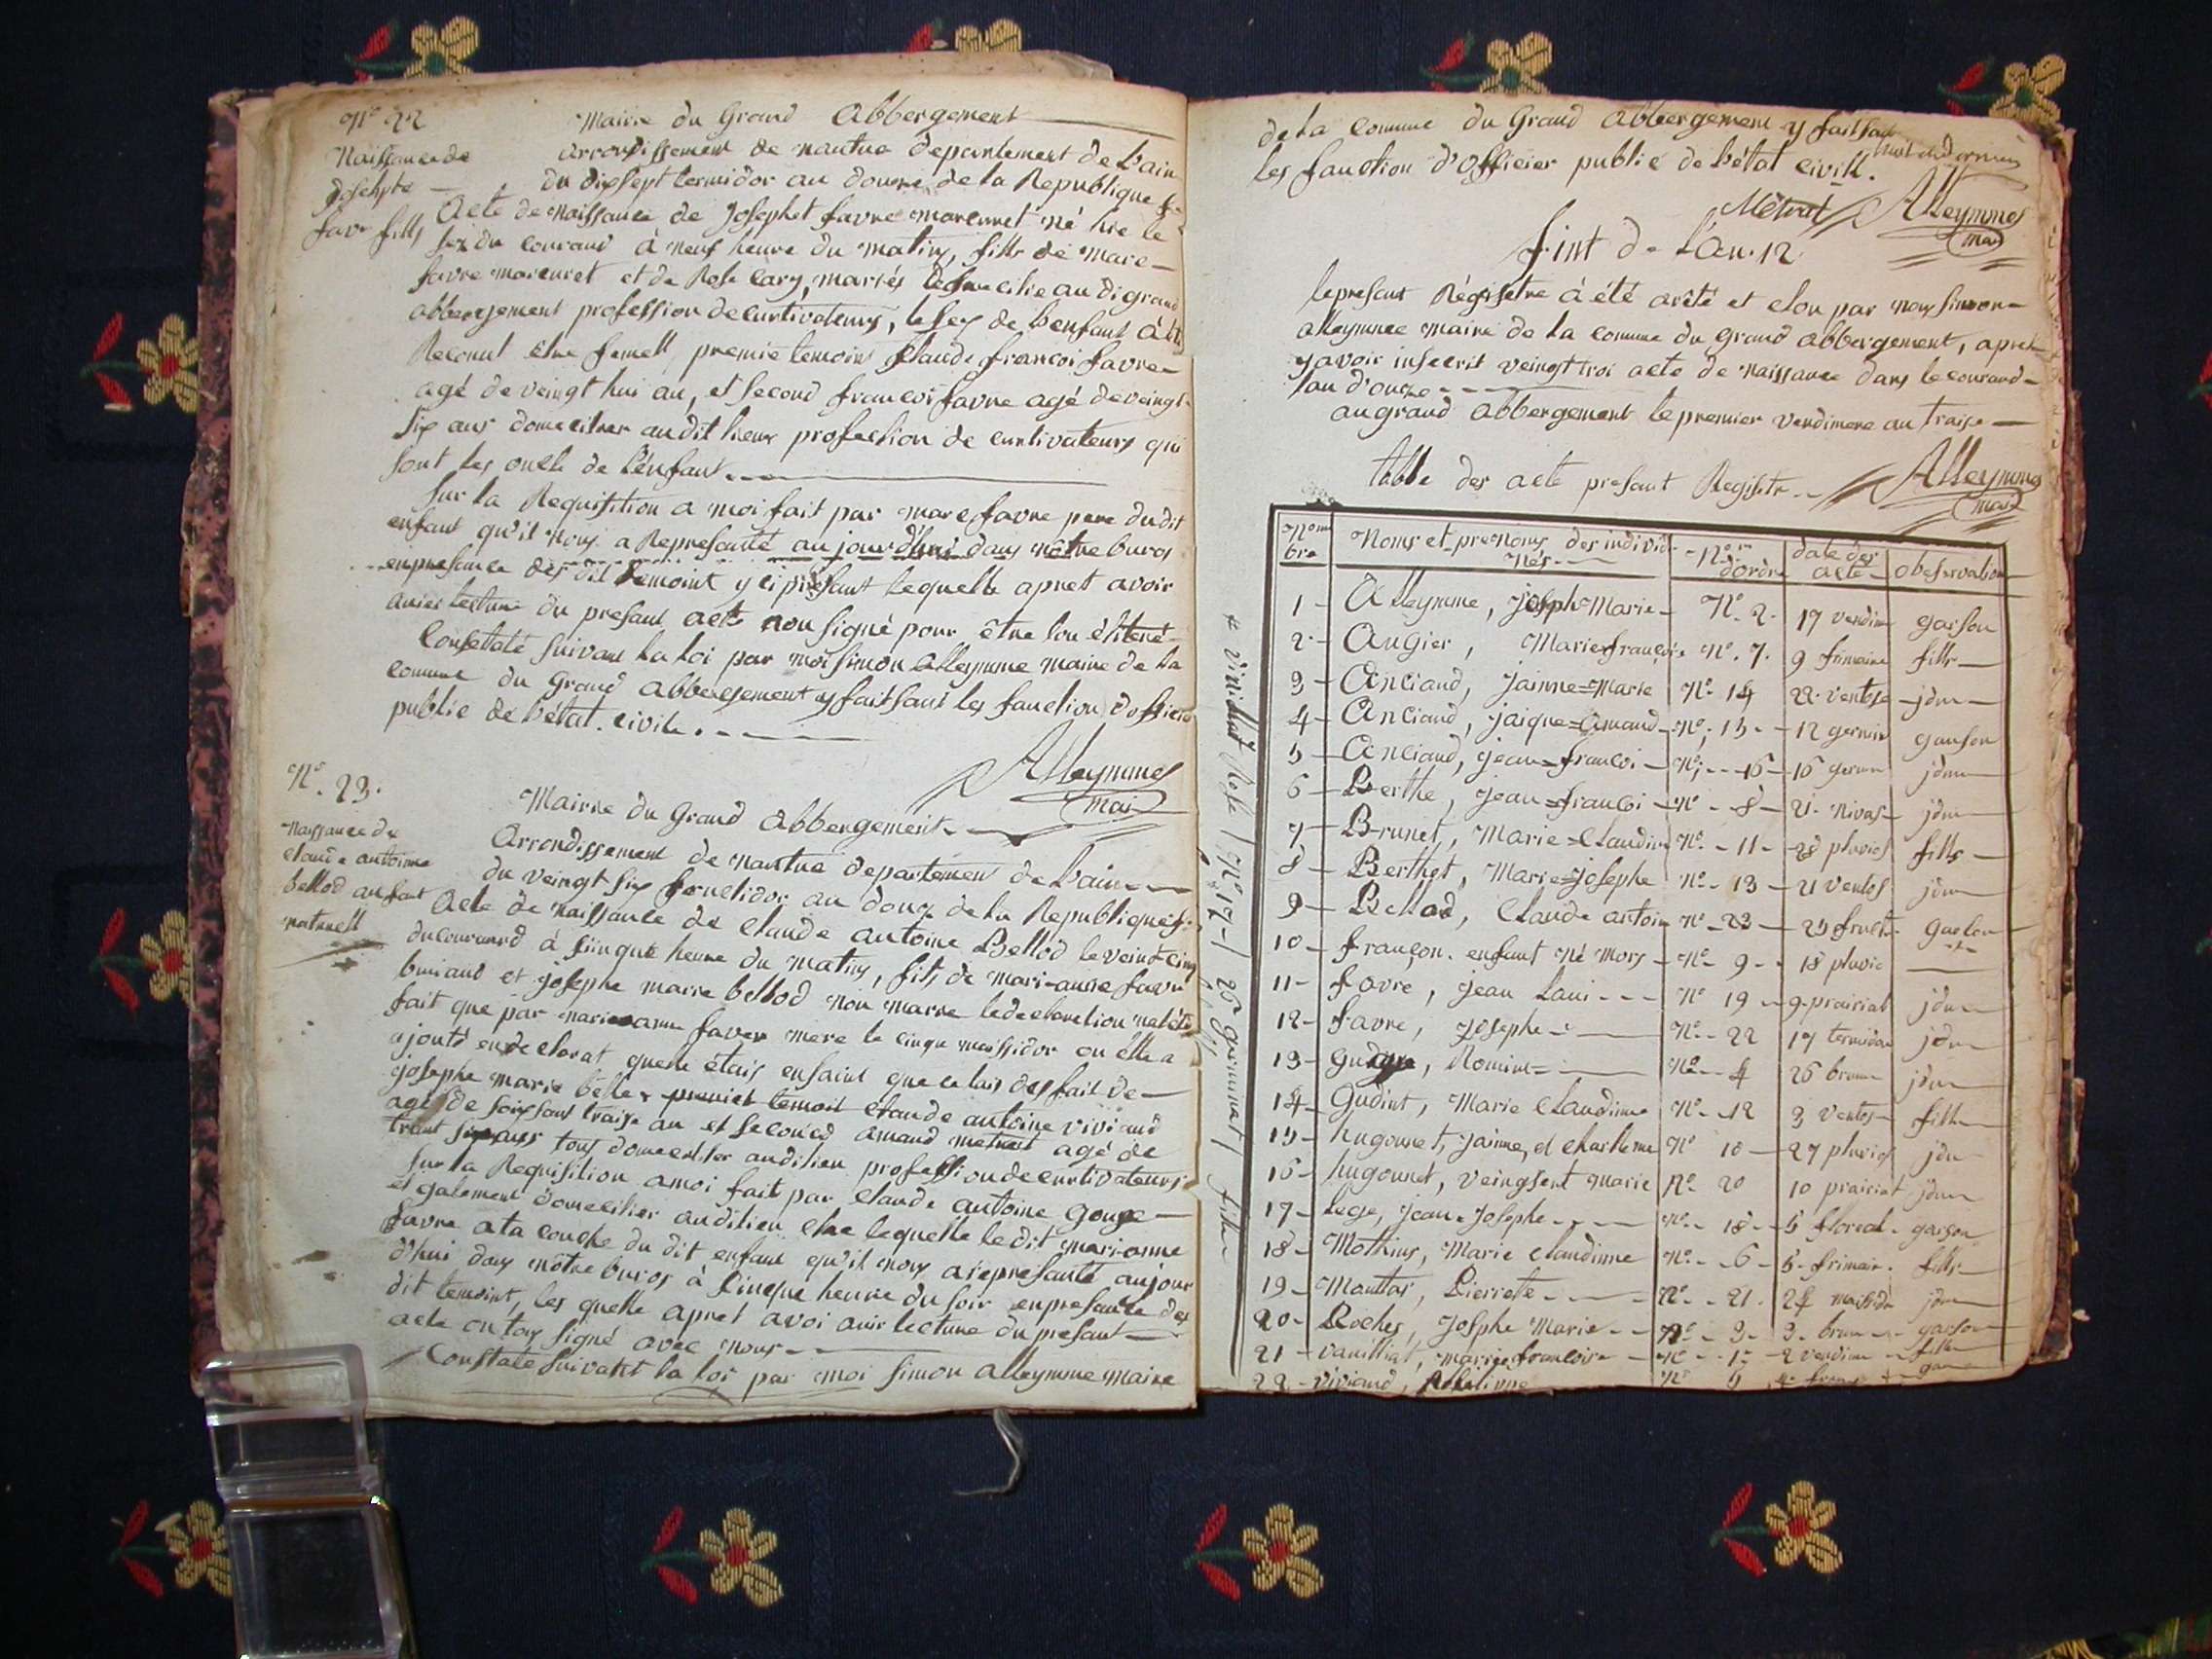 N° 22
Naissance de
Josehpte
favr fills
Mairie du Grand Abbergement
arrondissement de nantua departement de l'ain
du dixsept termidor an douze de la Republique
Acte de Naissance de Josephet favre marcunet né hie le
sez du courand à neuf heure du matins, fills de marc
favre morcuret et de Rose Cary, mariés au di grand
abbergement profession de curtivateurs, le sex de l'enfant à été
Reconut être femell, premie temoins Claude francoi favre
agé de veingt hui an, et second francois favre agé de veingt
six ans domecilier audit lieux profession de curtivateurs qui
sont les oncle de l'enfant
sur la Requisition a moi fait par marc favre pere dudit
enfant qu'il nous a Representé aujourd'hui dans nôtre buros
enpresance des dit temoint y ci présant lequelle apret avoir
lecture du presant acte non signé pour être
Consetaté suivant la loi par moi simon alleymme maire de la
commune du Grand abbergement y faitsant les fonction d'officier
public de l'état civile.
Alleymmes
mai
N° 23.
Naissance de
claude antoinne
bellod anfant
naturell
Mairie du Grand abbergement
Arrondissement de nantua departement de l'ain
du veingt six fruclidor an douze de la Republique
Acte de naissance de Claude antoine Bellod le veint cinq
ducourand à cinque heure du matins, fils de mari-anne favre
buriand et josephe marie bellod non marie le declaretion
fait que par marie anne favre mere le cinque messidor ou élle a
ajouté quelle étais ensaint que ce lais des fait de
josephe marie belle, premier temoit claude antoine viviand
agé de soixsant traise an et second amand metrast agé de
trant six ans tous domecilier audilieu profession de curtivateurs
sur la Requisition amoi fait par Claude antoine gouge
egalement domecilier audilieu che lequelle ledit mari-anne
favre a la couche du dit enfant qu'il nous a represanté aujour
d'hui dans nôtre buros à cinque heure du soir enpresance des
dit temoint, les quelle apret avoi auir lecture du presant
acte on tous signé avec nous
Constaté suivant la loi par moi simon alleymme maire
de la commune du Grand Abbergement y faitsant
les fonction d'officier public de l'état civill.
Métrat
Alleymmes
mai
fint de l'an. 12
le presant Régistre à été arêté et clou par nous simon
alleymme maire de la commune du grand abbergement, apret
y avoir inscrit veingt troi acte de naissance dans le courand
an d'ouze
au grand abbergement le premier vendimere an traise
table des acte presant Registre
Alleymmes
mai
Nom bre Noms et prenoms des individu nés N° d'ordre date des acte observation
1 Alleymme, josph Marie N° 2. 17 vendim garson
2 Augier, Marie françoise N° 7. 9 frimaire fills
3 Anciand, jainne=Marie N° 14 22 ventose jdm
4 Anciand, jaique=Amand N° 15 12 germin garson
5 Anciand, jean=francoi N° 16 16 germ jdm
6 Berthe, jean=francoi N° 8 21 nivos jdm
7 Brunet, Marie=Claudine N° 11 28 pluvios fills
8 Berthet, Marie=josephe N° 13 21 ventos jdm
9 Bellod, Claude antoin N° 23 25 fruct garson
10 françon. enfant né mors N° 9 18 pluvio
11 favre, jean Loui N° 19 9 prairial jdm
12 favre, Josephe N° 22 17 termidor jdm
13 , Romine N° 4 26 brum jdm
14 Gudint, Marie Claudinne N° 12 3 ventos fille
15 hugonnet, jainne, et charlenne N° 10 27 pluvios jdm
16 hugonnet, veingsent marie N° 20 10 prairial jdm
17 Lege, jean Josephe N° 18 5 floreal garson
18 Mathius, Marie claudinne N° 6 6 frimair fills
19 Mouttar, Pierrete N° 21 24 messido jdm
20 Roches, Josphe Marie N° 3 3 brum garson
21 vauilliat, marie francoise N° 1 2 vendim fille
22 viviand, N° 5
vinidliat Rose N° 17 26 germinal fille